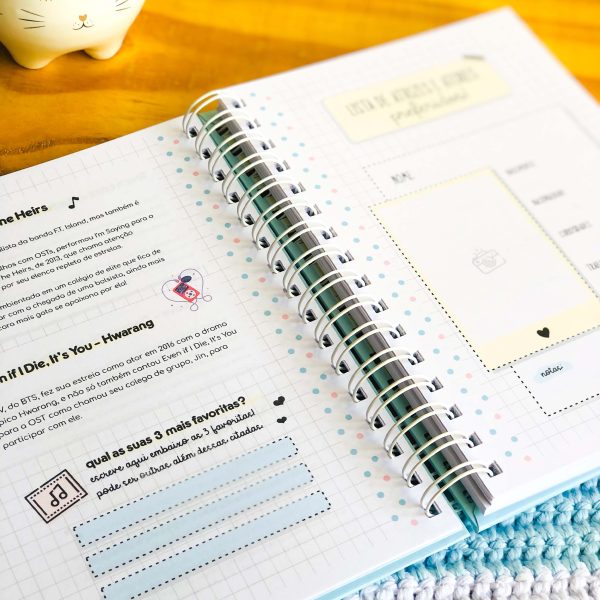 ne Heirs
lista da banda F.T. Island, mas também é
lhos com OSTs, performou I'm Saying para o
The Heirs, de 2013, que chama atenção
por seu elenco repleto de estrelas.
mbientado em um colégio de elite que fica de
ar com a chegada de uma bolsista, ainda mais
ara mais gato se apaixona por ela!
n if I Die, It's You - Hwarang
V, do BTS, fez sua estreia como ator em 2016 com o drama
pico Hwarang, e não só também cantou Even if I Die, It's You
para a OST como chamou seu colega de grupo, Jin, para
participar com ele.
qual as suas 3 mais favoritas?
escreve aqui embaixo as 3 favoritas!
pode ser outras além dessas citadas
LISTA DE ATRIZES E ATORES
preferidos!
NOME
notas